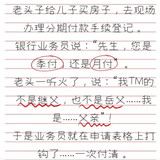 老头子给儿子买房子，去现场
办理分期付款手续登记。
银行业务员说：“先生，您是
季付 还是月付”。
老头一听火了，说：“我TM的
不是继父，也不是岳父……我
是……父亲”！
于是业务员就在申请表格上打
钩了……一次付清。